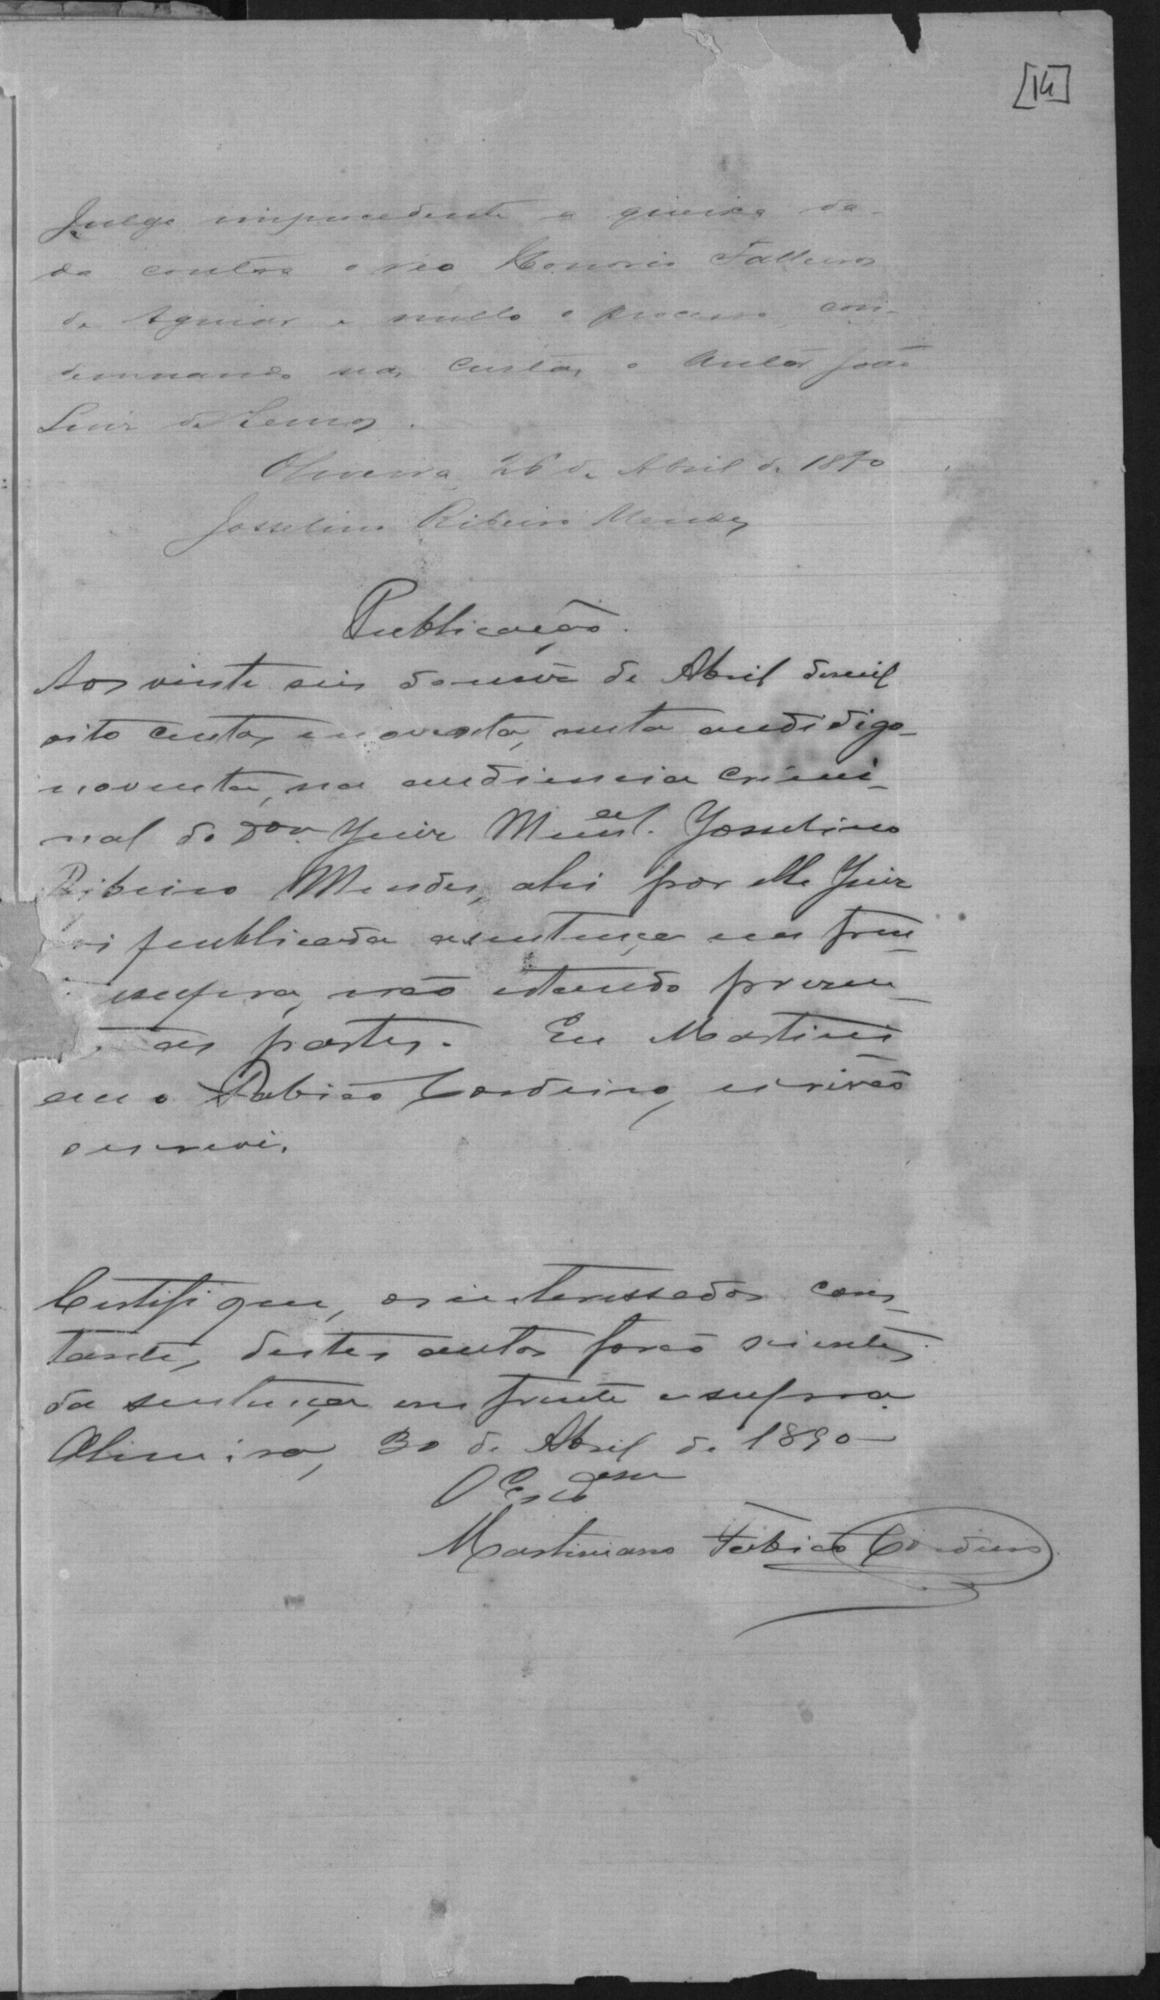 [14]
Julgo improcedente a queixa da-
da contra o reo Honorio
de Aguiar e nullo o processo, con-
demnando nas custas o Autor João
Luiz de Lemos.
Oliveira, 26 de Abril de 1890
Josselino Ribeiro Mendes
Publicação.
Aos vinte seis do mez de Abril de mil
oito centos e noventa, nesta audi digo
noventa, na audiencia crimi-
nal do Dor. Juiz Munal. Josselino
Ribeiro Mendes, ahi por elle Juiz
foi publicada a sentença em fren
e supra, não estando prezen-
as partes. Eu Martini
ano Fabião Cordeiro, escrivão
o escrevi.
Certifi que, os interessados cons-
tantes, destes autos forão scientes
da sentença em frente e supra.
Oliveira, 30 de Abril de 1890
O
Martiniano Fabião Cordeiro